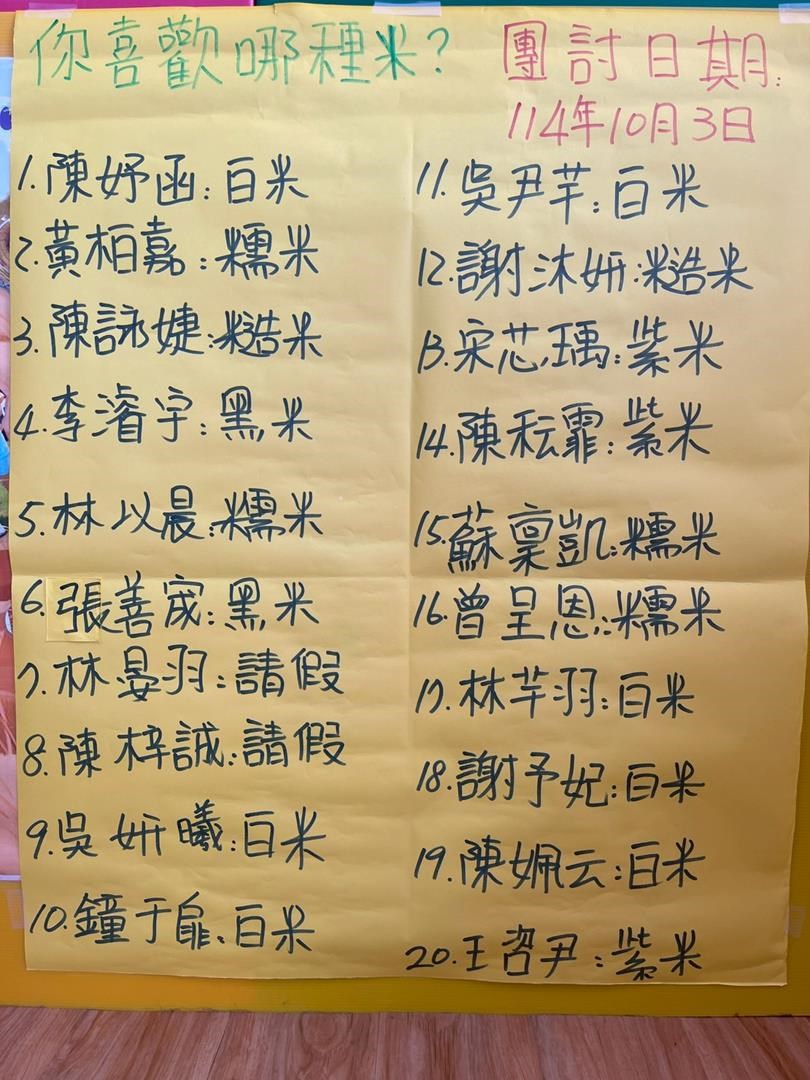 你喜歡哪種米?
團討日期:
114年10月3日
1.陳妤函:白米
2.黃柏嘉:糯米
3.陳詠婕:糙米
4.李濬宇:黑米
5.林以晨:糯米
6.張善宬:黑米
7.林晏羽:請假
8.陳梓誠:請假
9.吳妍曦:白米
10.鐘于扉:白米
11.吳尹芊:白米
12.謝沐妍:糙米
13.宋芯瑀:紫米
14.陳秐霏:紫米
15.蘇稟凱:糯米
16.曾呈恩:糯米
17.林芊羽:白米
18.謝予妃:白米
19.陳姵云:白米
20.王咨尹:紫米